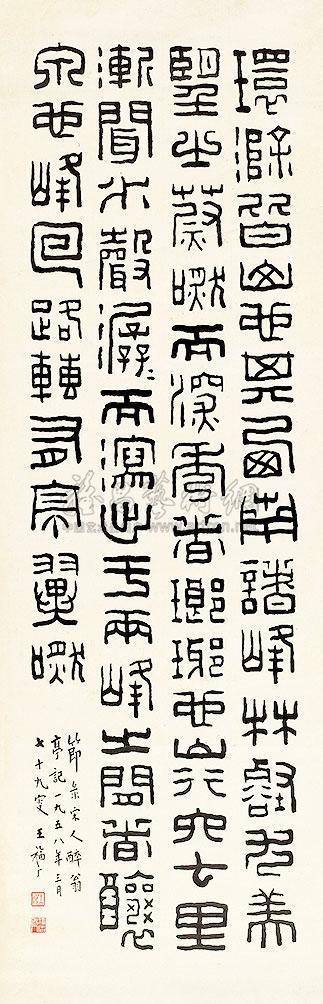 環滁皆山也其西南諸峰林壑尤美
望之蔚然而深秀者瑯琊也山行六七里
漸聞水聲潺〻而瀉出于兩峰之間者釀
泉也峰回路轉有亭翼然
節彔宋人醉翁
亭記一九五八年三月
七十九叟王福厂